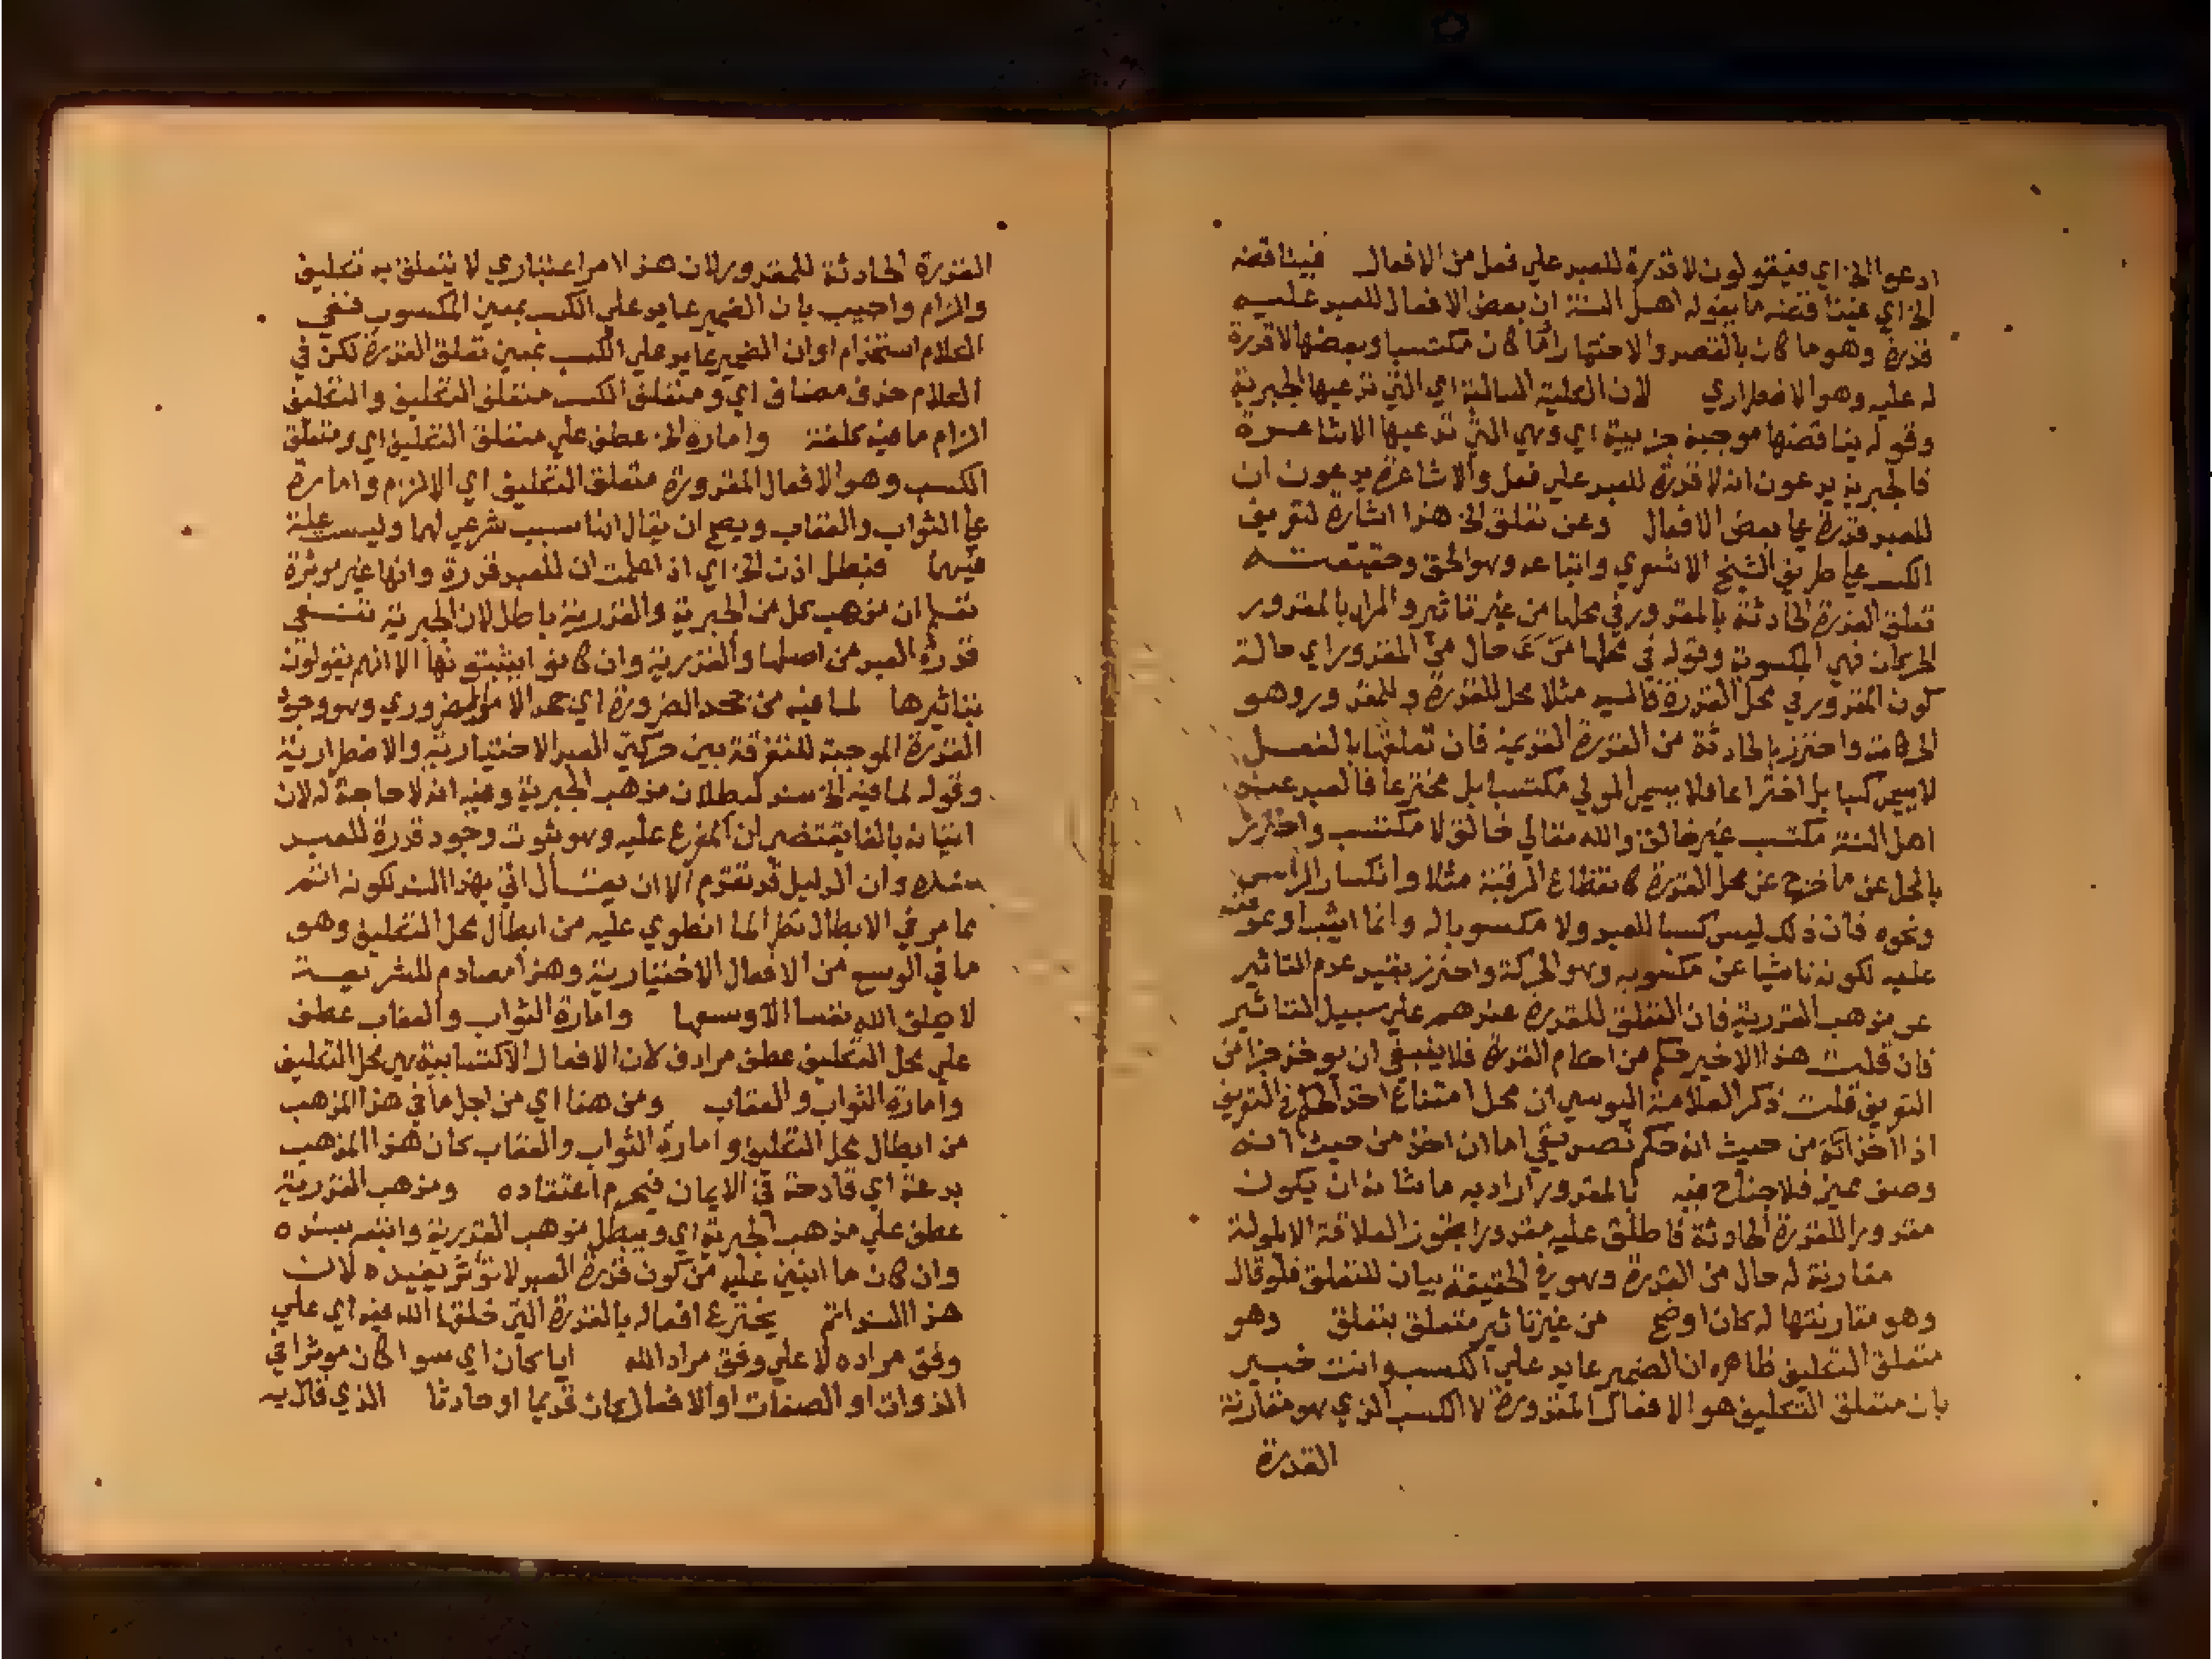 ادعوا الخ اي فيقولون لا قدرة للعبد علي فعل من الافعال فيناقضه
الخ اي فيناقضه ما يقوله اهل السنة ان بعض الافعال للعبد عليه
قدرة وهو ما كان بالقصد والاختيار اما كان مكتسبا وبعضها لا قدرة
له عليه وهو الاضطراري لان الكلية السالبة اي التي تدعيها الجبرية
وقوله يناقضها موجبة جزيية اي وهي التي تدعيها الاشاعرة
فالجبرية يدعون انه لا قدرة للعبد علي فعل والاشاعرة يدعون ان
للعبد قدرة علي بعض الافعال وعن تعلق الخ هذا اشارة لتعريف
الكسب علي طريق الشيخ الاشعري واتباعه وهو الحق وحقيقته
تعلق القدرة الحادثة بالمقدور في محلها من غير تاثير والمراد بالمقدور
الحركات فهي المكسوبة وقوله في محلها حال من المقدور اي حالة
كون المقدور في محل القدرة فاليد مثلا محل للقدرة وللمقدور وهو
الحركات واحترز بالحادثة من القدرة القديمة فان تعلقها بالفعل
لا يسمي كسبا بل اختراعا فلا يسمي المولي مكتسبا بل مخترعا فالعبد عند
اهل السنة مكتسب غير خالق والله تعالي خالق لا مكتسب واحترز
بالمحل عن ما خرج عن محل القدرة كانقطاع الرقبة مثلا وانكسار الراس
ونحوه فان ذلك ليس كسبا للعبد ولا مكسوبا له وانما اثيب او عوقب
عليه لكونه ناشيا عن مكسوبه وهو الحركة واحترز بقيد عدم التاثير
عن مذهب القدرية فان التعلق للقدرة عندهم علي سبيل التاثير
فان قلت هذا الاخير حكم من احكام القدرة فلا ينبغي ان يوخذ جزا من
التعريف قلت ذكر العلامة اليوسي ان محل امتناع اخذ الحكم في التعريف
اذا اخذ من حيث انه حكم تصديقي اما ان اخذ من حيث انه
وصف مميز فلا جناح فيه بالمقدور اراد به ما شانه ان يكون
مقدورا للقدرة الحادثة فاطلق عليه مقدورا بتجوز لعلاقة الايلولة
مقارنة له حال من القدرة وهو في الحقيقة بيان للتعلق فلو قال
وهو مقارنتها له كان اوضح من غير تاثير متعلق بتعلق وهو
متعلق التكليف ظاهره ان الضمير عايد علي الكسب وانت خبير
بان متعلق التكليف هو الافعال المقدورة لا الكسب الذي هو مقارنة
القدرة
القدرة الحادثة للمقدور لان هذا الامر اعتباري لا يتعلق به تكليف
والزام واجيب بان الضمير عايد علي الكسب بمعني المكسوب ففي
الكلام استخدام او ان الضمير عايد علي الكسب بمعني تعلق القدرة لكن في
الكلام حذف مضاف اي ومتعلق الكسب متعلق التكليف والتكليف
الزام ما فيه كلفة وامارة الخ عطف علي متعلق التكليف اي ومتعلق
الكسب وهو الافعال المقدورة متعلق التكليف اي الالزام وامارة
علي الثواب والعقاب ويصح ان يقال انها سبب شرعي لهما وليست علة
فيهما فبطل اذن الخ اي اذ اعلمت ان للعبد قدرة وانها غير موثرة
تعلم ان مذهب كل من الجبرية والقدرية باطل لان الجبرية تنفي
قدرة العبد من اصلها والقدرية وان كانوا يثبتونها الا انهم يقولون
بتاثيرها لما فيه من جحد الضرورة اي جحد الامر الضروري وهو وجود
القدرة الموجبة للتفرقة بين حركتي العبد الاختيارية والاضطرارية
وقوله لما فيه الخ سند لبطلان مذهب الجبرية وفيه انه لا حاجة له لان
اتيانه بالفا يقتضي ان المفرع عليه وهو ثبوت وجود قدرة للعبد
سنده وان الدليل قد تقدم الا ان يقال اتي بهذا السند لكونه اتم
مما مر في الابطال نظرا لما انطوي عليه من ابطال محل التكليف وهو
ما في الوسع من الافعال الاختيارية وهذا مصادم للشريعة
لا يكلف الله نفسا الا وسعها وامارة الثواب والعقاب عطف
علي محل التكليف عطف مرادف لان الافعال الاكتسابية هي محل التكليف
وامارة الثواب والعقاب ومن هنا اي من اجل ما في هذا المذهب
من ابطال محل التكليف وامارة الثواب والعقاب كان هذا المذهب
بدعة اي قادحة في الايمان فيحرم اعتقاده ومذهب القدرية
عطف علي مذهب الجبرية اي ويبطل مذهب القدرية واتي بسنده
وان كان ما انبني عليه من كون قدرة العبد لا توثر يفيده لان
هذا السند اتم يخترع افعاله بالقدرة التي خلقها الله فيه اي علي
وفق مراده لا علي وفق مراد الله ايا كان اي سوا كان موثرا في
الذوات او الصفات او الافعال كان قديما او حادثا الذي قال به